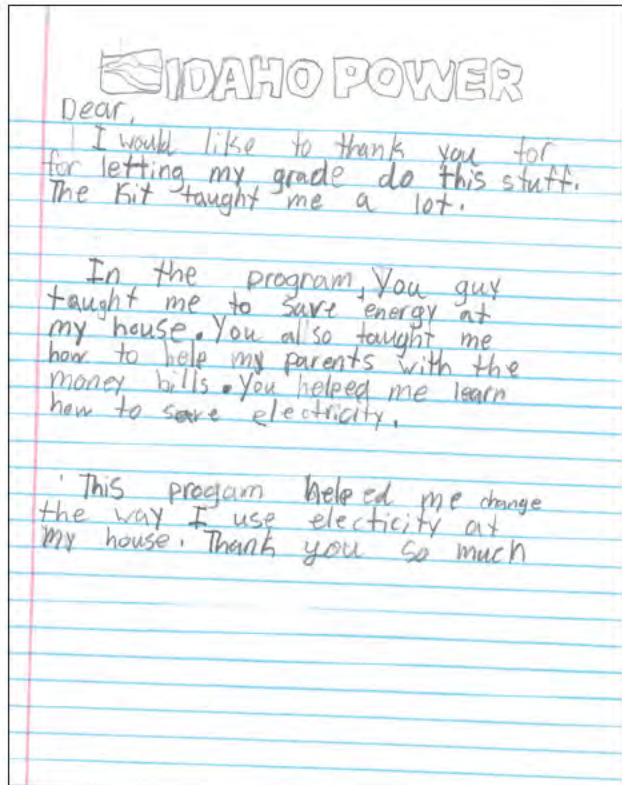 IDAHO POWER
Dear,
I would like to thank you for
for letting my grade do this stuff.
The Kit taught me a lot.
In the program, You guy
taught me to save energy at
my house. You also taught me
how to help my parents with the
money bills. You helped me learn
how to save electricity.
This progam helped me change
the way I use electicity at
my house. Thank you so much